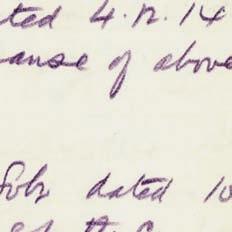 ted 4.12.14
ause of above
dated 10
of the